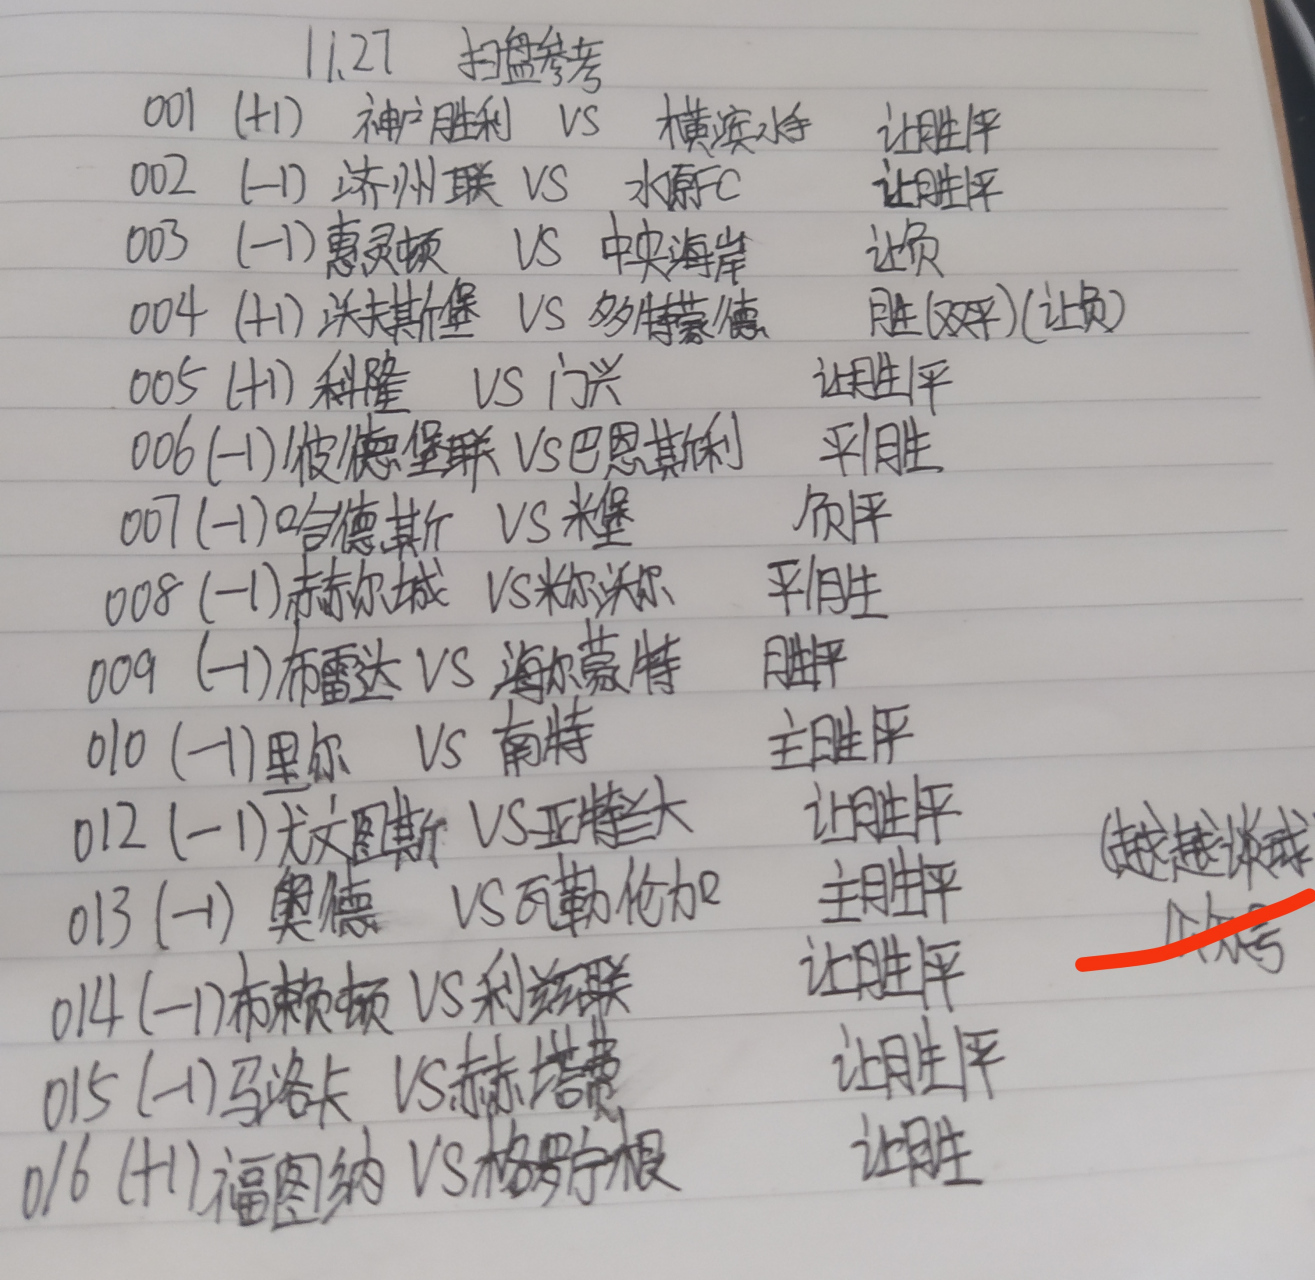 11.27 扫盘参考
001 (+1) 神户胜利 VS 横滨水手 让胜平
002 (-1) 济州联 VS 水原FC 让胜平
003 (-1) 惠灵顿 VS 中央海岸 让负
004 (+1) 沃夫斯堡 VS 多特蒙德 胜(双平)(让负)
005 (+1) 科隆 VS 门兴 让胜/平
006 (-1) 彼德堡联 VS 巴恩斯利 平/胜
007 (-1) 哈德斯 VS 米堡 负/平
008 (-1) 赫尔城 VS 米尔沃尔 平/胜
009 (-1) 布雷达 VS 海尔蒙特 胜平
010 (-1) 里尔 VS 南特 主胜平
012 (-1) 尤文图斯 VS 亚特兰大 让胜/平
013 (-1) 奥德 VS 瓦勒伦加 主胜平
014 (-1) 布赖顿 VS 利兹联 让胜平
015 (-1) 马洛卡 VS 赫塔费 让胜/平
016 (+1) 福图纳 VS 格罗宁根 让胜
(越越谈球
公众号